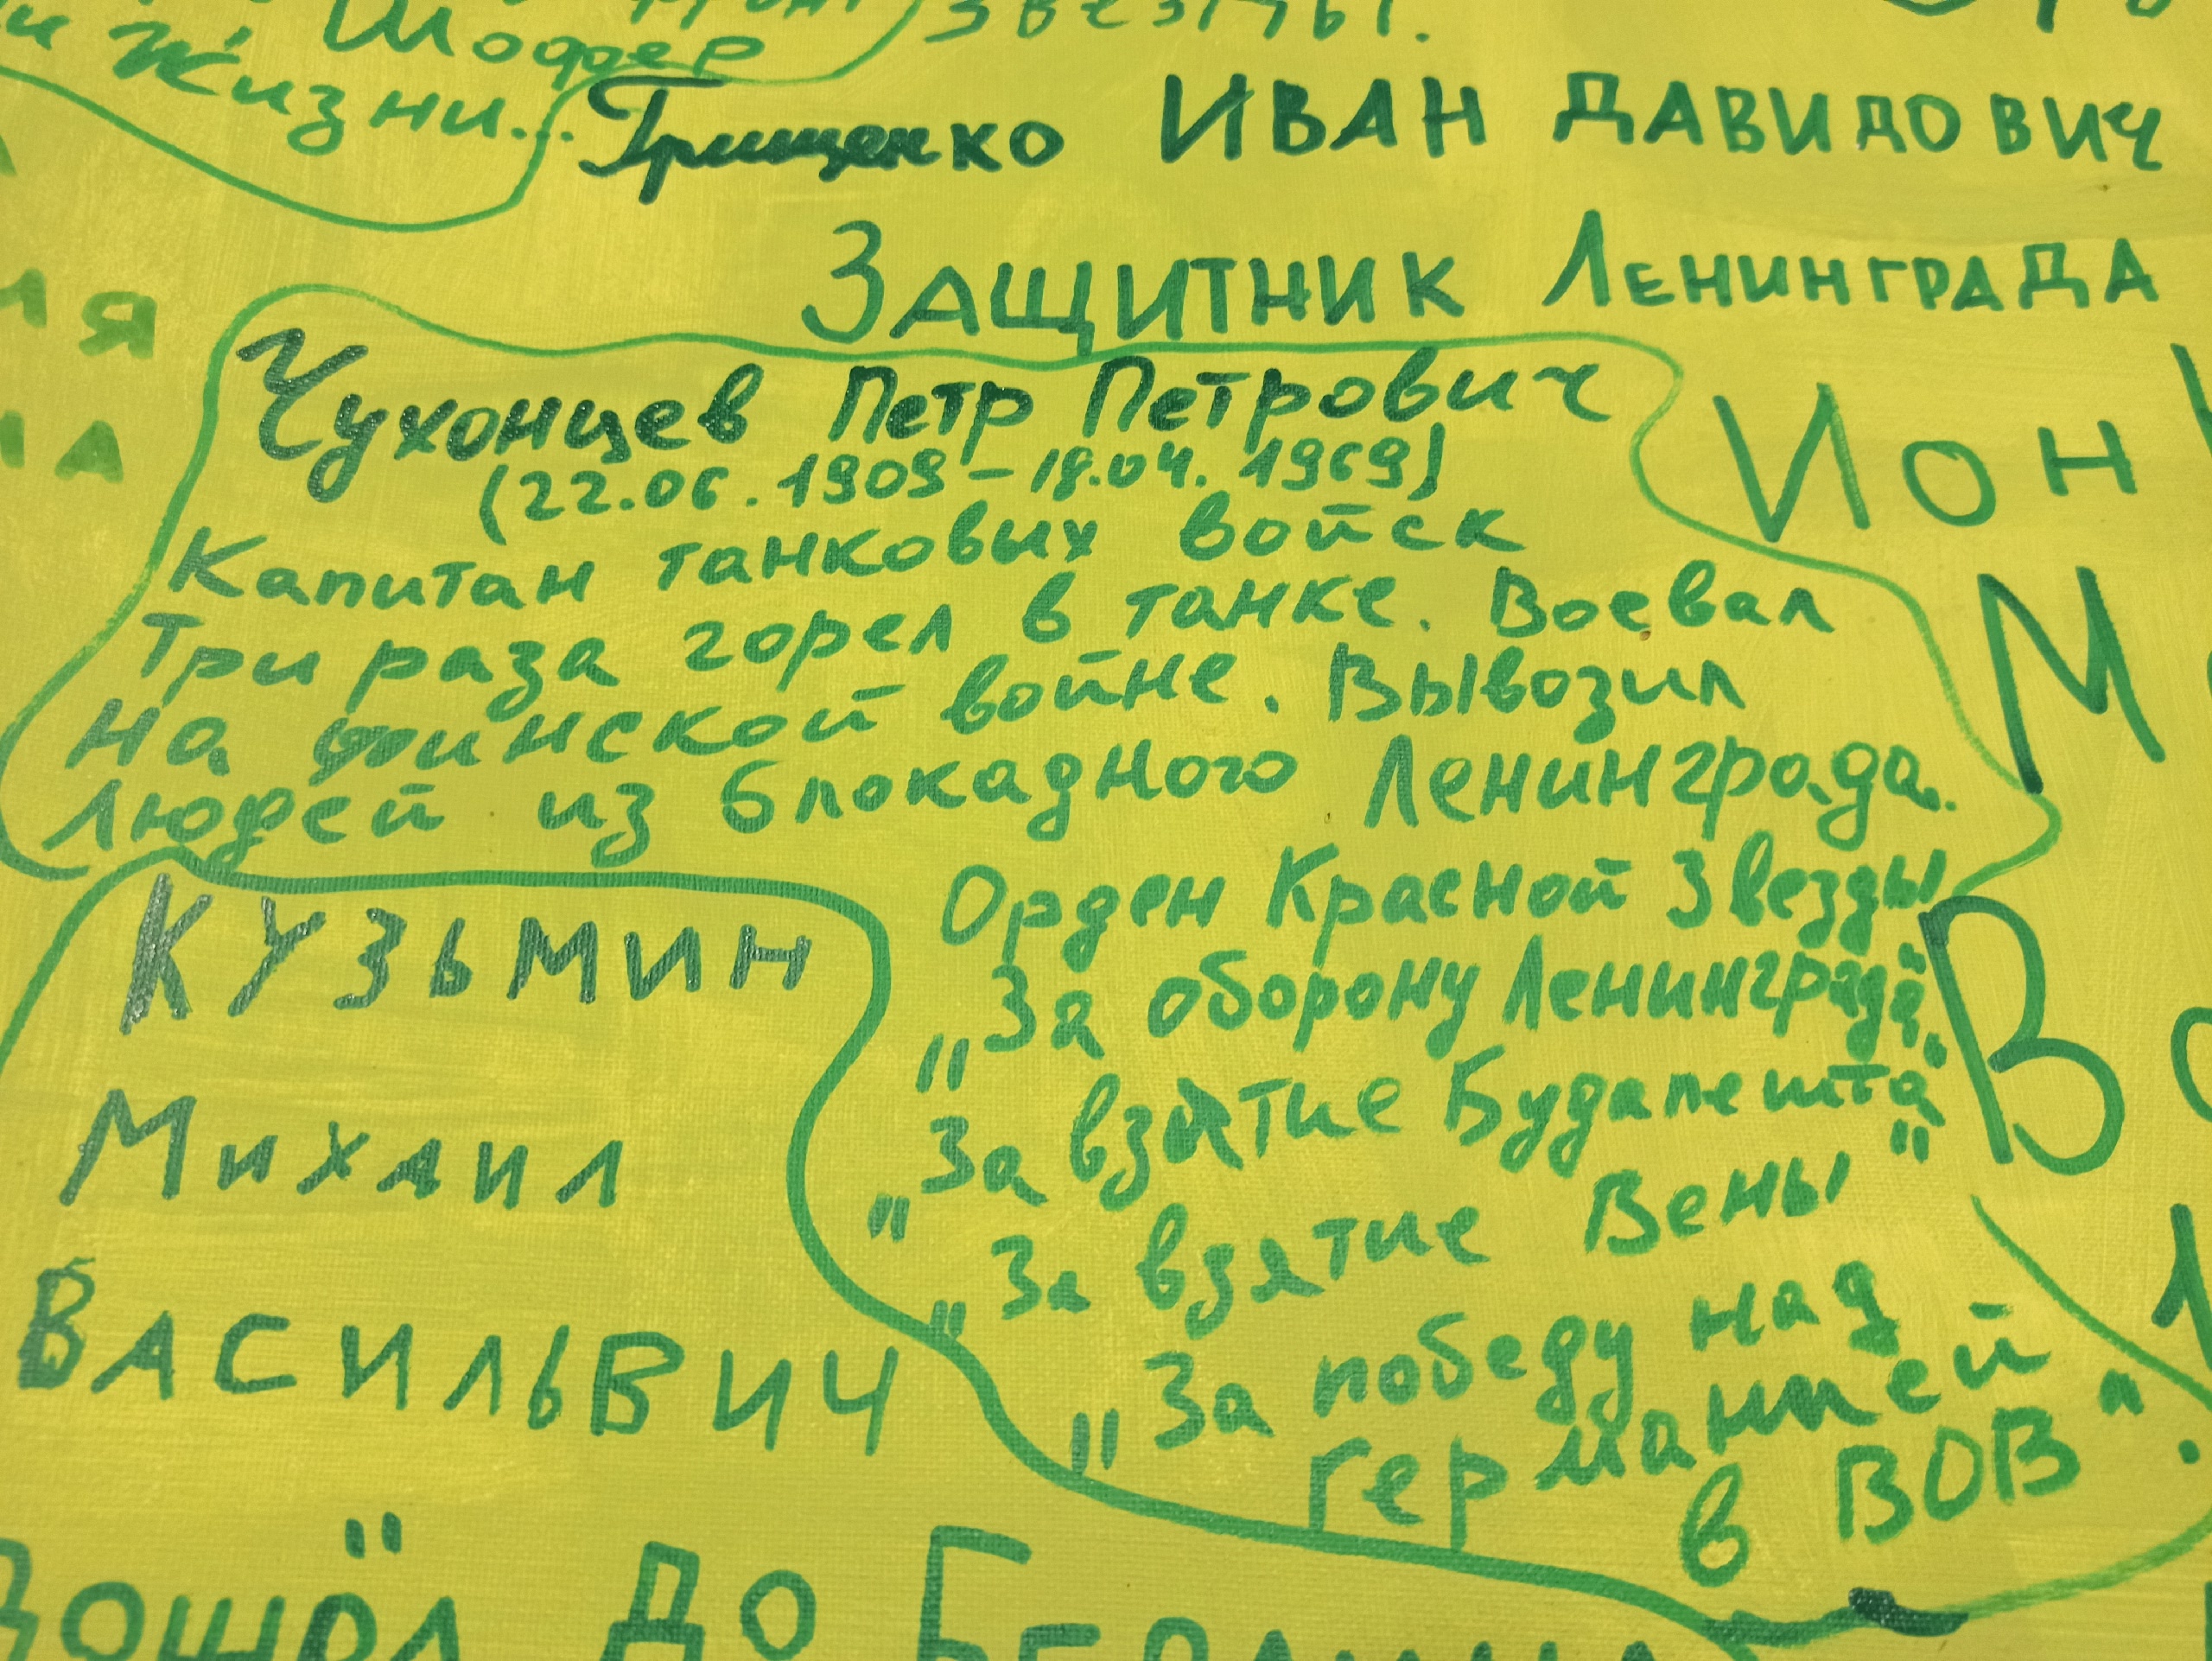 звезды.
Шофер
Жизни...
Грищенко ИВАН ДАВИДОВИЧ
ЗАЩИТНИК ЛЕНИНГРАДА
Чухонцев Петр Петрович
(22.06.1909 - 18.04.1969)
Капитан танковых войск
Три раза горел в танке. Воевал
на финской войне. Вывозил
людей из блокадного Ленинграда.
Орден Красной Звезды
"За оборону Ленинграда"
"За взятие Будапешта"
"За взятие Вены"
"За победу над
Германией
в ВОВ".
КУЗЬМИН
МИХАИЛ
ВАСИЛЬВИЧ
ДОШЁЛ ДО
Ион